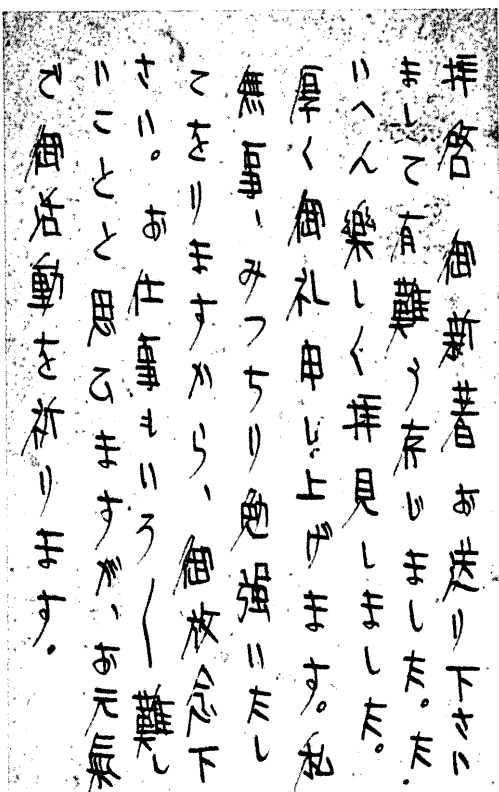 拝啓　御新著お送り下さい
まして有難う存じました。た
いへん樂しく拝見しました。
厚く御礼申し上げます。私
無事、みつちり勉強いたし
てをりますから、御放念下
さい。お仕事もいろ〳〵難し
いことと思ひますが、お元氣
で御活動を祈ります。